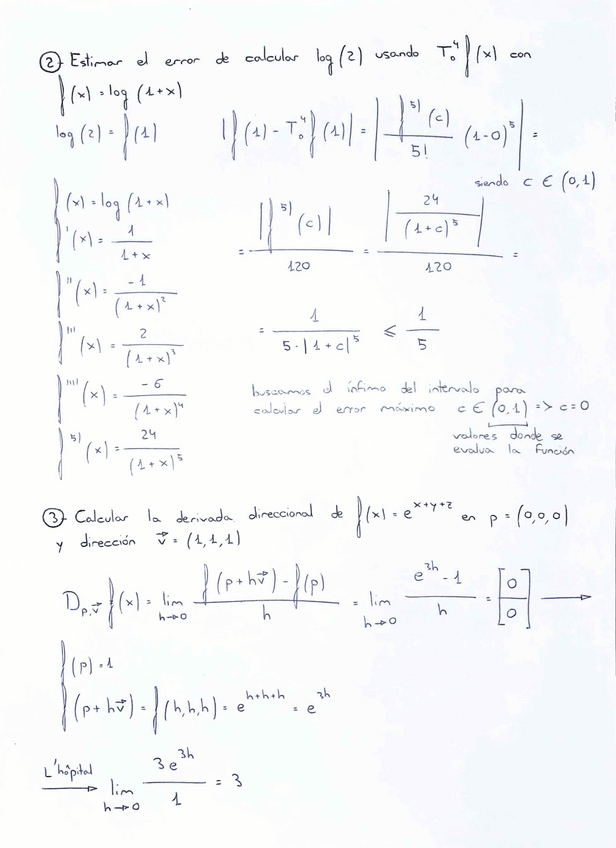 ② Estimar el error de calcular log(2) usando T₀⁴ f(x) con
f(x) = log(1+x)
log(2) = f(1) |f(1) - T₀⁴ f(1)| = | f⁵⁾(c) / 5! (1-0)⁵ | =
siendo c ∈ (0,1)
f(x) = log(1+x)
f'(x) = 1 / (1+x)
f''(x) = -1 / (1+x)²
f'''(x) = 2 / (1+x)³
f''''(x) = -6 / (1+x)⁴
f⁵⁾(x) = 24 / (1+x)⁵
= |f⁵⁾(c)| / 120 = | 24 / (1+c)⁵ | / 120 =
= 1 / (5·|1+c|⁵) ≤ 1/5
buscamos el ínfimo del intervalo para
calcular el error máximo c ∈ (0,1) => c=0
valores donde se
evalua la función
③ Calcular la derivada direccional de f(x) = e^(x+y+z) en p = (0,0,0)
y dirección v⃗ = (1,1,1)
D_p,v⃗ f(x) = lim h→0 (f(p+hv⃗) - f(p)) / h = lim h→0 (e^(3h) - 1) / h = [0/0] →
f(p) = 1
f(p+hv⃗) = f(h,h,h) = e^(h+h+h) = e^(3h)
L'hôpital → lim h→0 3e^(3h) / 1 = 3